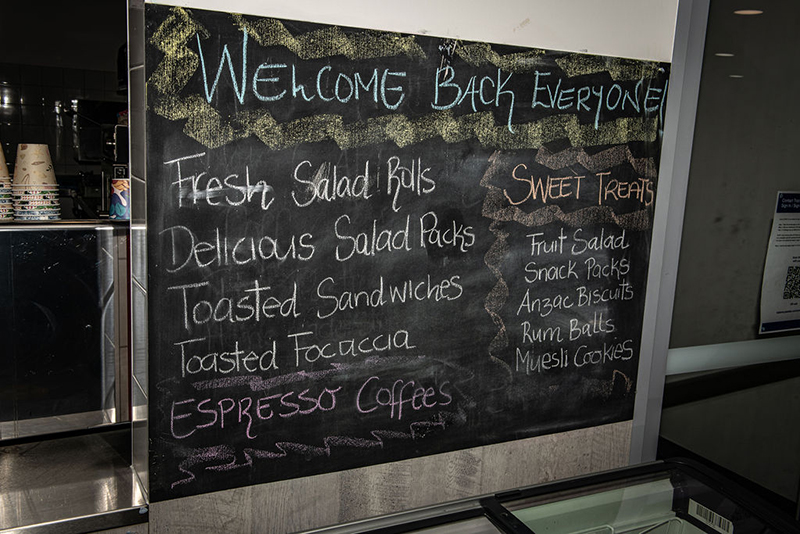 WELCOME BACK EVERYONE!
Fresh Salad Rolls
Delicious Salad Packs
Toasted Sandwiches
Toasted Focaccia
ESPRESSO Coffees
SWEET TREATS
Fruit Salad
Snack Packs
Anzac Biscuits
Rum Balls
Muesli Cookies